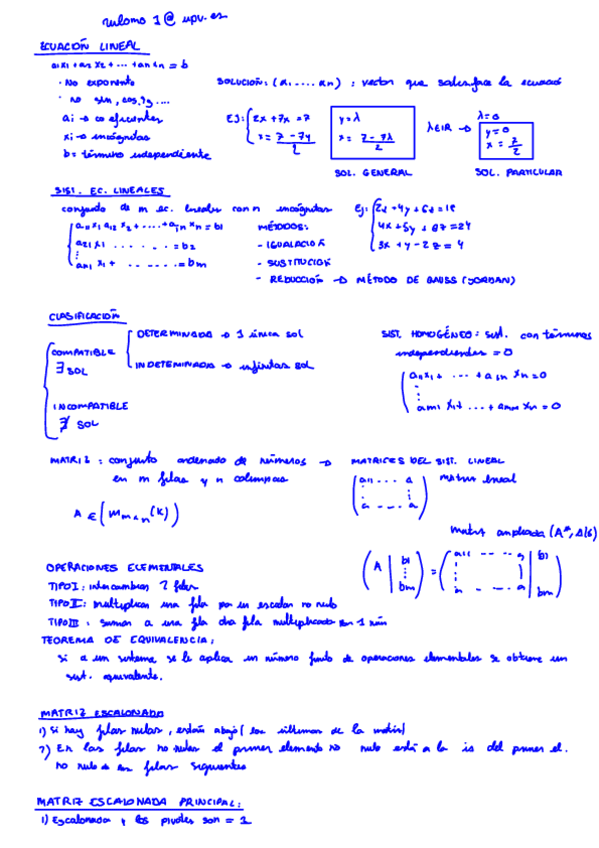 ECUACIÓN LINEAL
a1x1 + a2 x2 + ... + an xn = b
· No exponente
· no sin, cos, tg ....
ai → coeficientes
xi → incógnitas
b = término independiente
SOLUCIÓN: (α1 ..... αn) : vector que satisface la ecuació
EJ: { 2x + 7y = 7
x = 7 - 7y / 2
y = λ
x = 7 - 7λ / 2
SOL. GENERAL
λ∈ℝ →
λ = 0
y = 0
x = 7/2
SOL. PARTICULAR
SIST. EC. LINEALES
conjunto de m ec. lineales con n incógnitas
a11 x1 a12 x2 + .... + a1n xn = b1
a21 x1 . . . . . . = b2
am1 x1 + . . . . . . = bm
MÉTODOS:
- IGUALACIÓN
- SUSTITUCIÓN
- REDUCCIÓN → MÉTODO DE GAUSS (JORDAN)
4x + 5y + 8z = 24
3x + y - 2z = 4
CLASIFICACIÓN
COMPATIBLE
∃ SOL
DETERMINADO → 1 única sol
INDETERMINADO → infinitas sol
INCOMPATIBLE
∄ SOL
SIST. HOMOGÉNEO: sist. con términos
independientes = 0
a11 x1 + ... + a1n xn = 0
am1 x1 + ... + amn xn = 0
MATRIZ : conjunto ordenado de números →
en m filas y n columnas
A ∈ (M m×n (K))
MATRICES DEL SIST. LINEAL
(a11 ... a
a ... a) matriz
matriz ampliada (A*, A|b)
(A | b1 ⋮ bm) = (a11 -- -- a | b1
a -- -- a | bm)
OPERACIONES ELEMENTALES
TIPO I: intercambiar 2 filas
TIPO II: multiplicar una fila por un escalar no nulo
TIPO III: sumar a una fila otra fila multiplicada por 1 núm
TEOREMA DE EQUIVALENCIA:
si a un sistema se le aplica un número finito de operaciones elementales se obtiene un
sist. equivalente.
MATRIZ ESCALONADA
1) Si hay filas nulas, están abajo (las últimas de la matriz)
2) En las filas no nulas el primer elemento no nulo está a la del primer el.
no nulo de las filas siguientes
MATRIZ ESCALONADA PRINCIPAL:
1) Escalonada y los pivotes son = 1